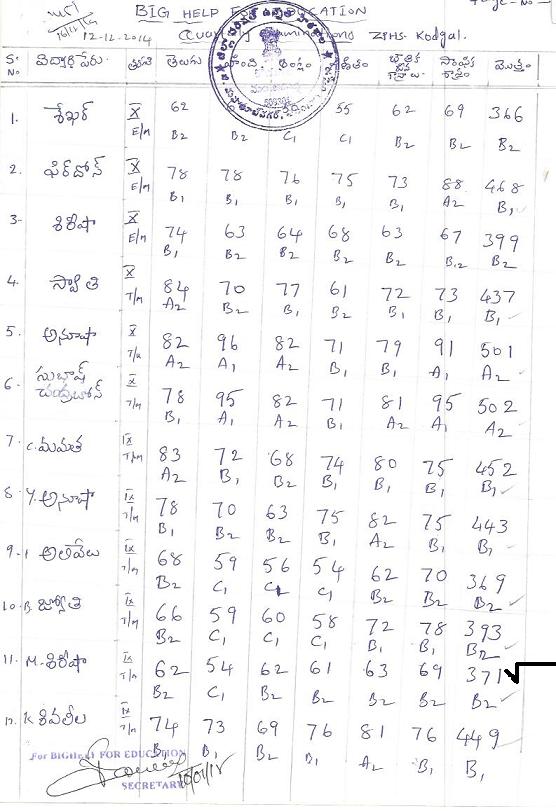 16/12/14
BIG HELP FOR EDUCATION
12-12-2014 Quarterly Examinations ZPHS- Kodgal.
S. No విద్యార్థి పేరు తరగతి తెలుగు హింది ఇంగ్లీషు గణితం భౌతిక సాంఘిక శాస్త్రం మొత్తం
1. శేఖర్ X 62 55 62 69 366
E/m B2 B2 C1 C1 B2 B2 B2
2. ఫిర్దోస్ X 78 78 76 75 73 88 468
E/m B1 B1 B1 B1 B1 A2 B1
3- శిరీషా X 74 63 64 68 63 67 399
E/m B1 B2 B2 B2 B2 B2 B2
4. స్వాతి X 84 70 77 61 72 73 437
T/m A2 B2 B1 B2 B1 B1 B1
5. అనూషా X 82 96 82 71 79 91 501
T/m A2 A1 A2 B1 B1 A1 A2
6. సుభాష్ చంద్రబోస్ X 78 95 82 71 81 95 502
T/m B1 A1 A2 B1 A2 A1 A2
7. C.మమత IX 83 72 68 74 80 75 452
T/m A2 B1 B2 B1 B1 B1 B1
8. Y.అనూషా IX 78 70 63 75 82 75 443
T/m B1 B2 B2 B1 A2 B1 B1
9. అలివేలు IX 68 59 56 54 62 70 369
T/m B2 C1 C1 C1 B2 B2 B2
10. B జ్యోతి IX 66 59 60 58 72 78 393
T/m B2 C1 C1 C1 B1 B1 B2
11. M.శిరీషా IX 62 54 62 61 63 69 371
T/m B2 C1 B2 B2 B2 B2 B2
12. K శివలీల IX 74 73 69 76 81 76 449
T/m B1 B1 B2 B1 A2 B1 B1
For BIGHELP FOR EDUCATION
SECRETARY